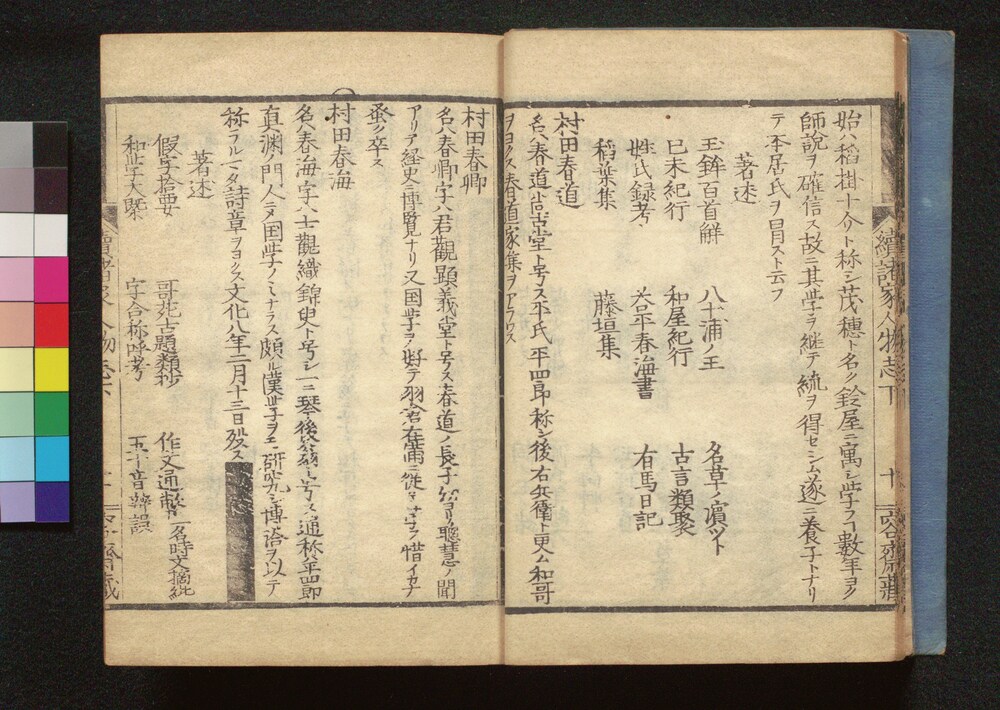 始ハ稲掛十介ト称シ茂穂ト名ク鈴屋ニ寓シ学フコ数年ヨク
師説ヲ確信ス故ニ其学ヲ継テ統ヲ得セシム遂ニ養子トナリ
テ本居氏ヲ冒スト云フ
著述
玉鉾百首解 八十浦ノ玉 名草ノ濵ツト
已未紀行 和屋紀行 古言類聚
姓氏録考 荅平春海書 有馬日記
稻葉集 藤垣集
村田春道
名ハ春道尚古堂ト号ス平氏平四郎称シ後右兵衛ト更ム和哥
ヲヨクス春道家集ヲアラワス
續諸家人物志下 十
村田春卿
名ハ春卿字ハ君觀顕義堂ト号ス春道ノ長子ヨリ聰慧ノ聞
アリテ経史ニ博覽ナリ又国学ヲ好テ
蚤ク卒ス
村田春海
名ハ春海字ハ士觀織錦斎ト号シ一ニ琴後翁ト号ス通称平四郎
真渊ノ門人ニメ国学ノミナラス頗ル漢学ヲモ研究シ博洽ヲ以テ
称ラル一タ詩章ヲヨクス文化八年二月十三日殁ス
著述
假字拾要 哥苑古題類抄 作文通弊 一名時文摘紕
和学大槩 字合称呼考 五十音辨誤